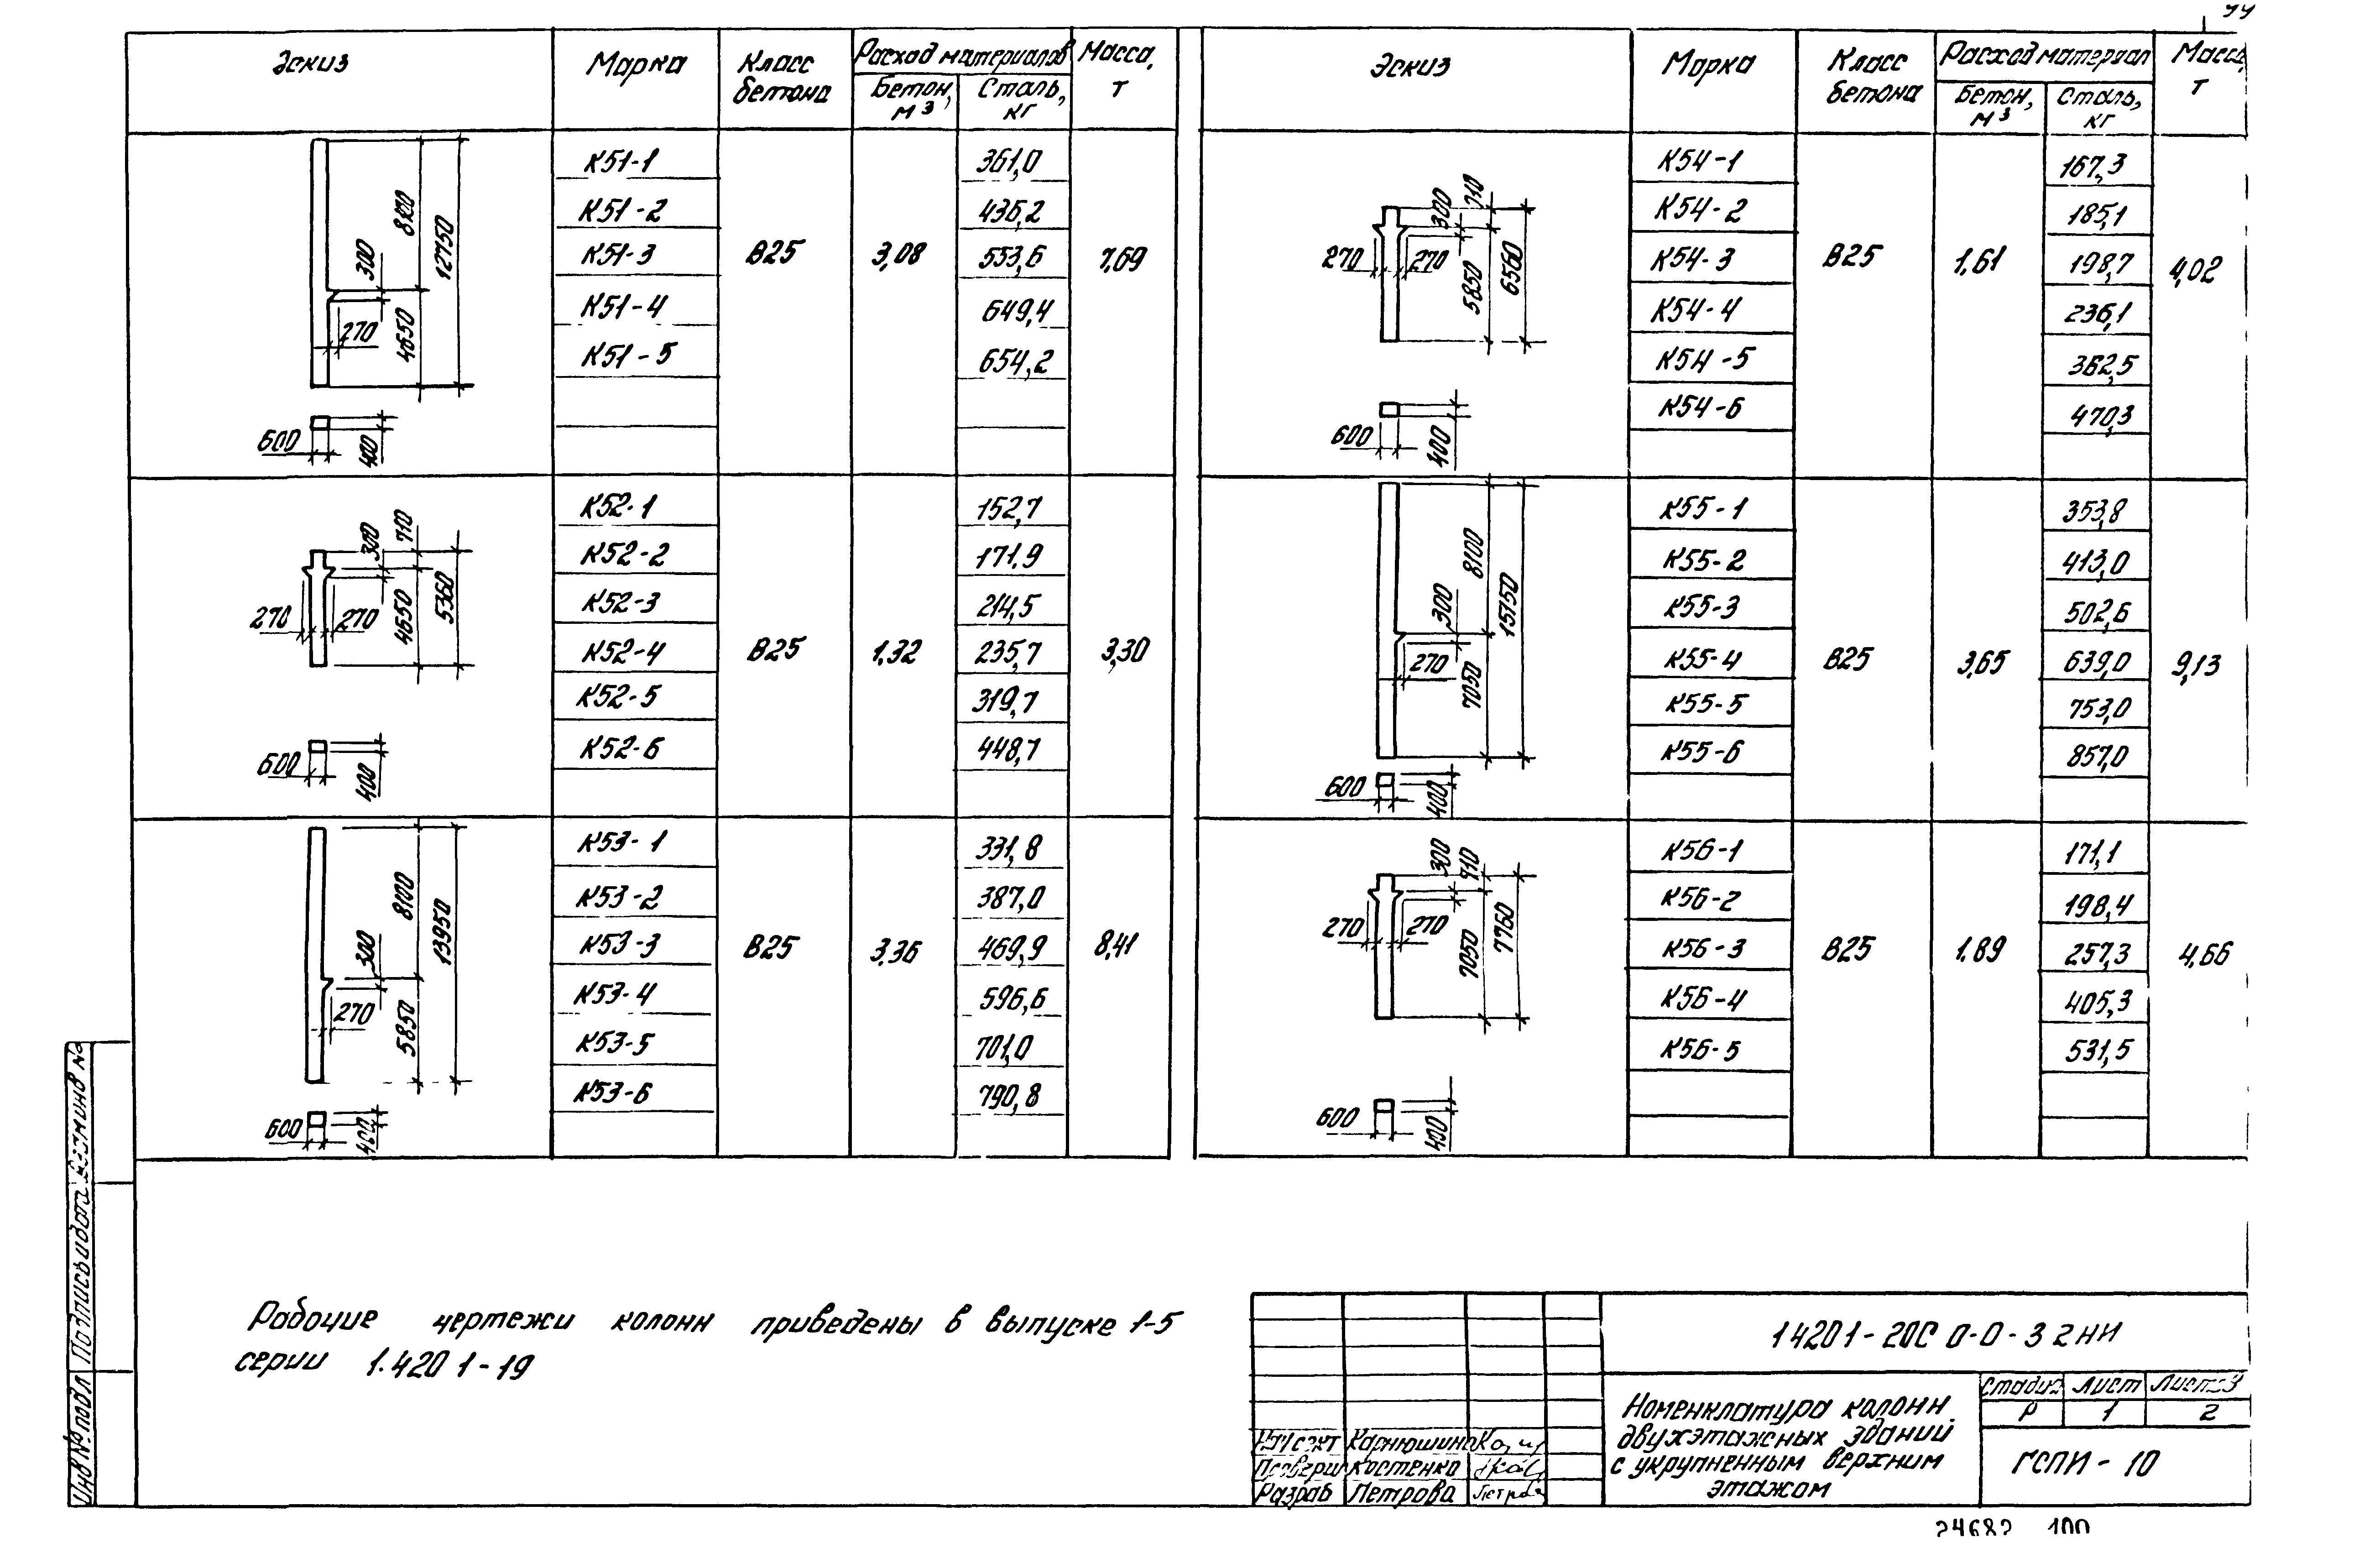 Эскиз Марка Класс бетона Расход материалов Масса, т
Бетон, м³ Сталь, кг
8100 12750 300 270 4650
600 400
К51-1 361,0
К51-2 436,2
К51-3 В25 3,08 533,6 7,69
К51-4 649,4
К51-5 654,2
300 710 270 270 4650 5360
600 400
К52-1 152,7
К52-2 171,9
К52-3 214,5
К52-4 В25 1,32 235,7 3,30
К52-5 319,7
К52-6 448,7
8100 13950 300 270 5850
600 400
К53-1 331,8
К53-2 387,0
К53-3 В25 3,36 469,9 8,41
К53-4 596,6
К53-5 701,0
К53-6 790,8
Эскиз Марка Класс бетона Расход материал Масса, т
Бетон, м³ Сталь, кг
300 710 270 270 5850 6560
600 400
К54-1 167,3
К54-2 185,1
К54-3 В25 1,61 198,7 4,02
К54-4 236,1
К54-5 362,5
К54-6 470,3
8100 15750 300 270 7050
600 400
К55-1 353,8
К55-2 413,0
К55-3 502,6
К55-4 В25 3,65 639,0 9,13
К55-5 753,0
К55-6 857,0
300 710 270 270 7050 7760
600 400
К56-1 171,1
К56-2 198,4
К56-3 В25 1.89 257,3 4,66
К56-4 405,3
К56-5 531,5
Рабочие чертежи колонн приведены в выпуске 1-5
серии 1.420 1-19
1 420 1-20С 0-0-3 2НИ
Номенклатура колонн
двухэтажных зданий
с укрупненным верхним
этажом
Стадия Лист Листов
Р 1 2
ГСПИ-10
Карнюшина
Костенко
Разраб Петрова
Инв № подл Подпись и дата Взам инв №
24682 100